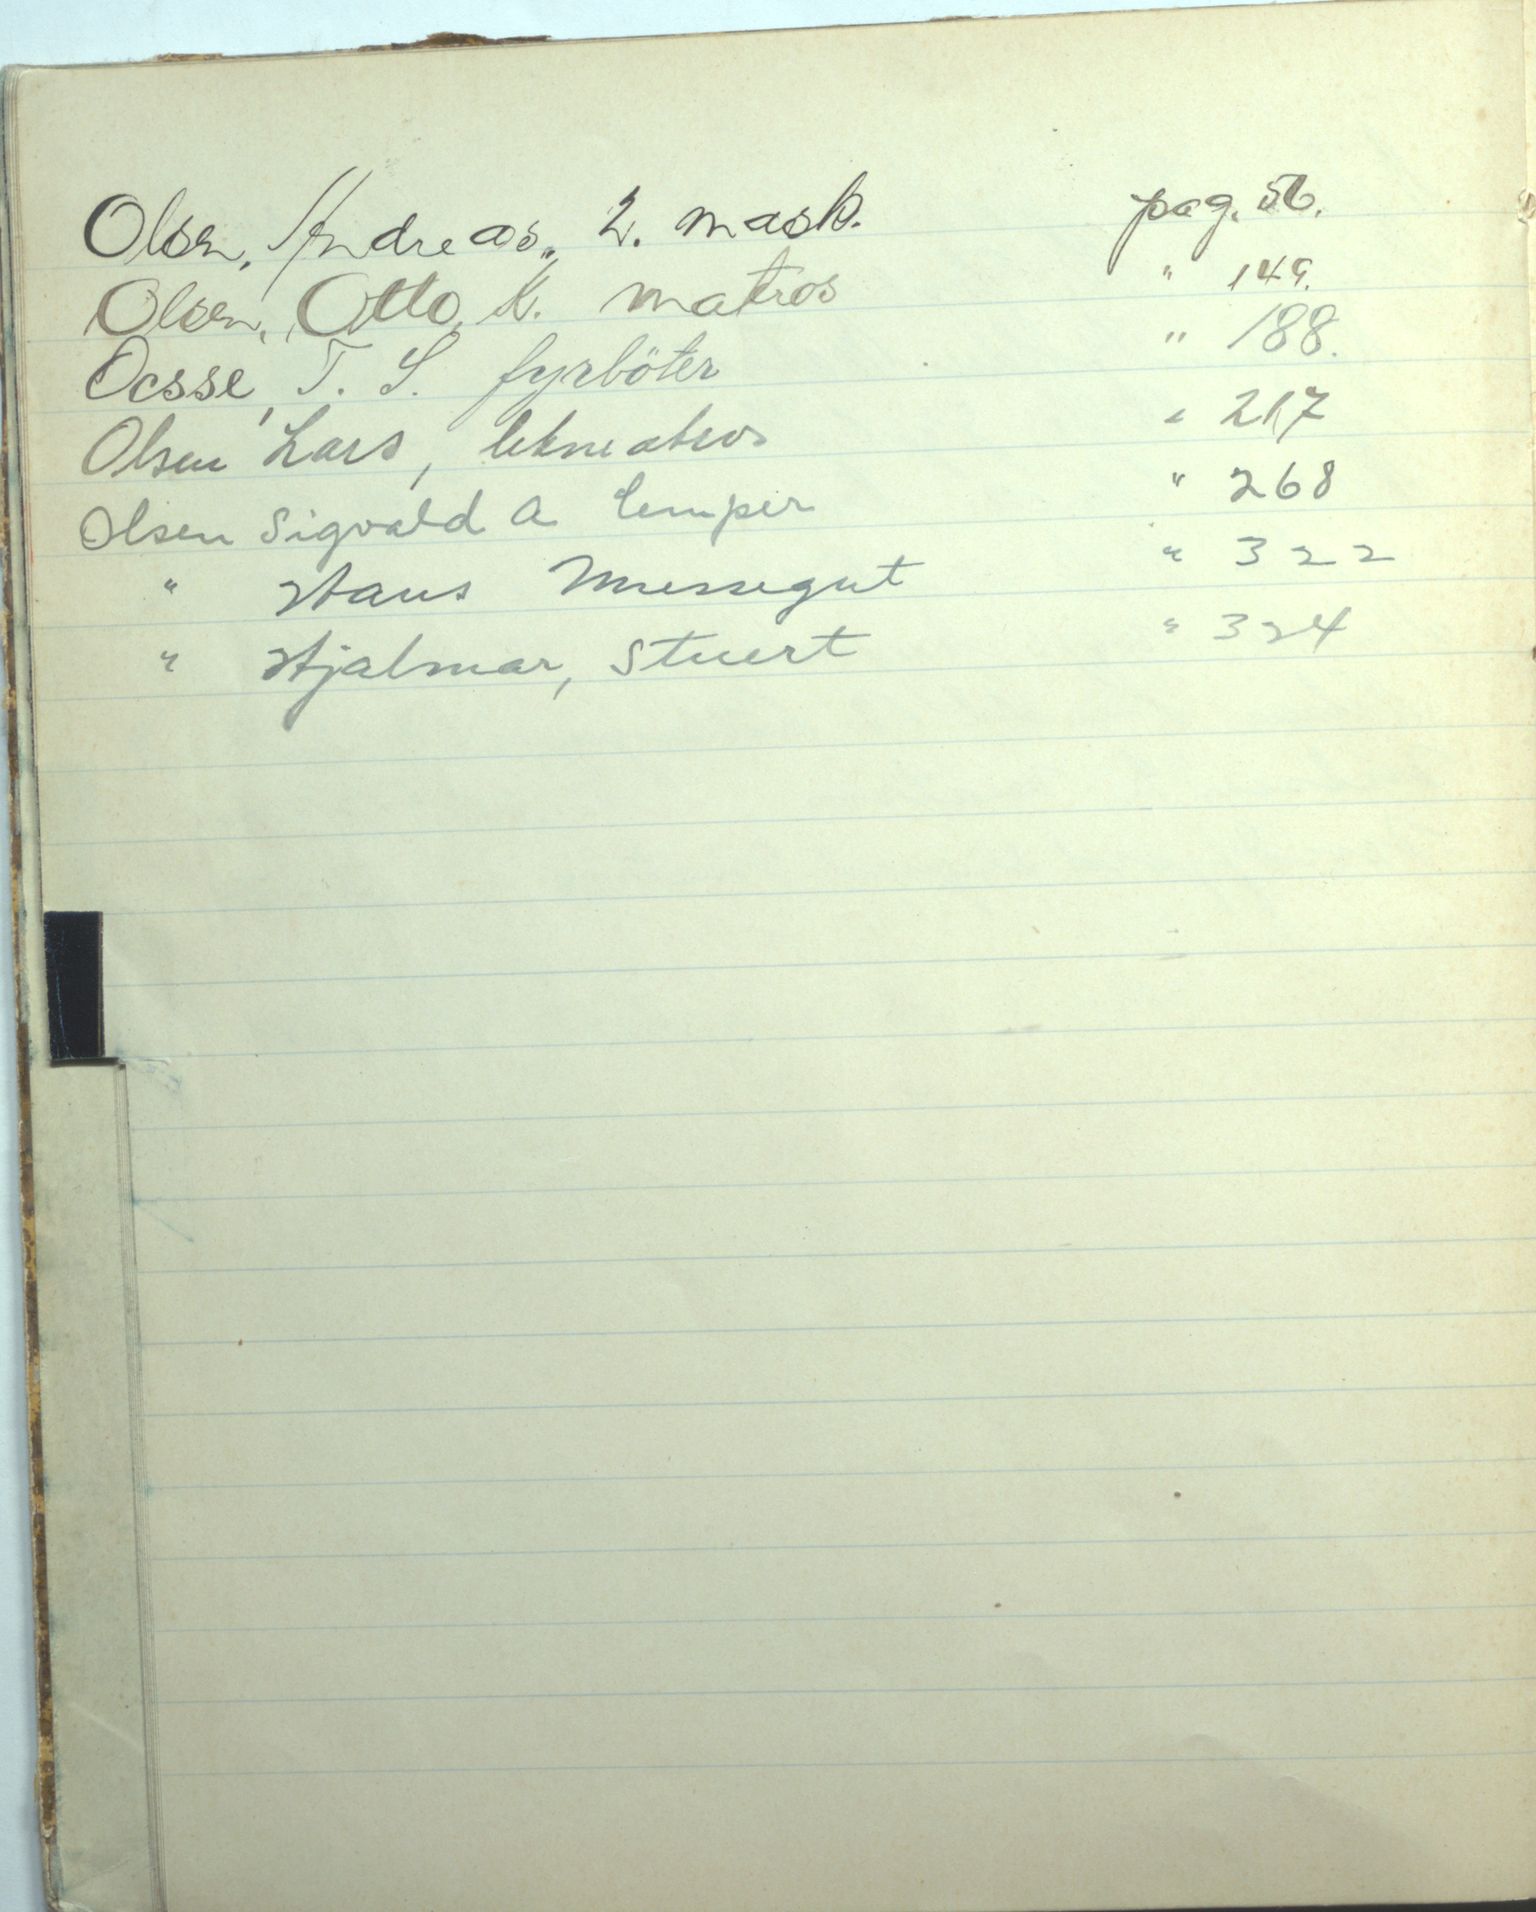 Olsen, Andreas, 2. mask. pag. 56.
Olsen, Otto, K. matros " 149.
Ocsse, T. S. fyrböter " 188.
Olsen Lars, letmatros " 217
Olsen Sigvald A lemper " 268
" Hans Messegut " 322
" Hjalmar, Stuert " 324